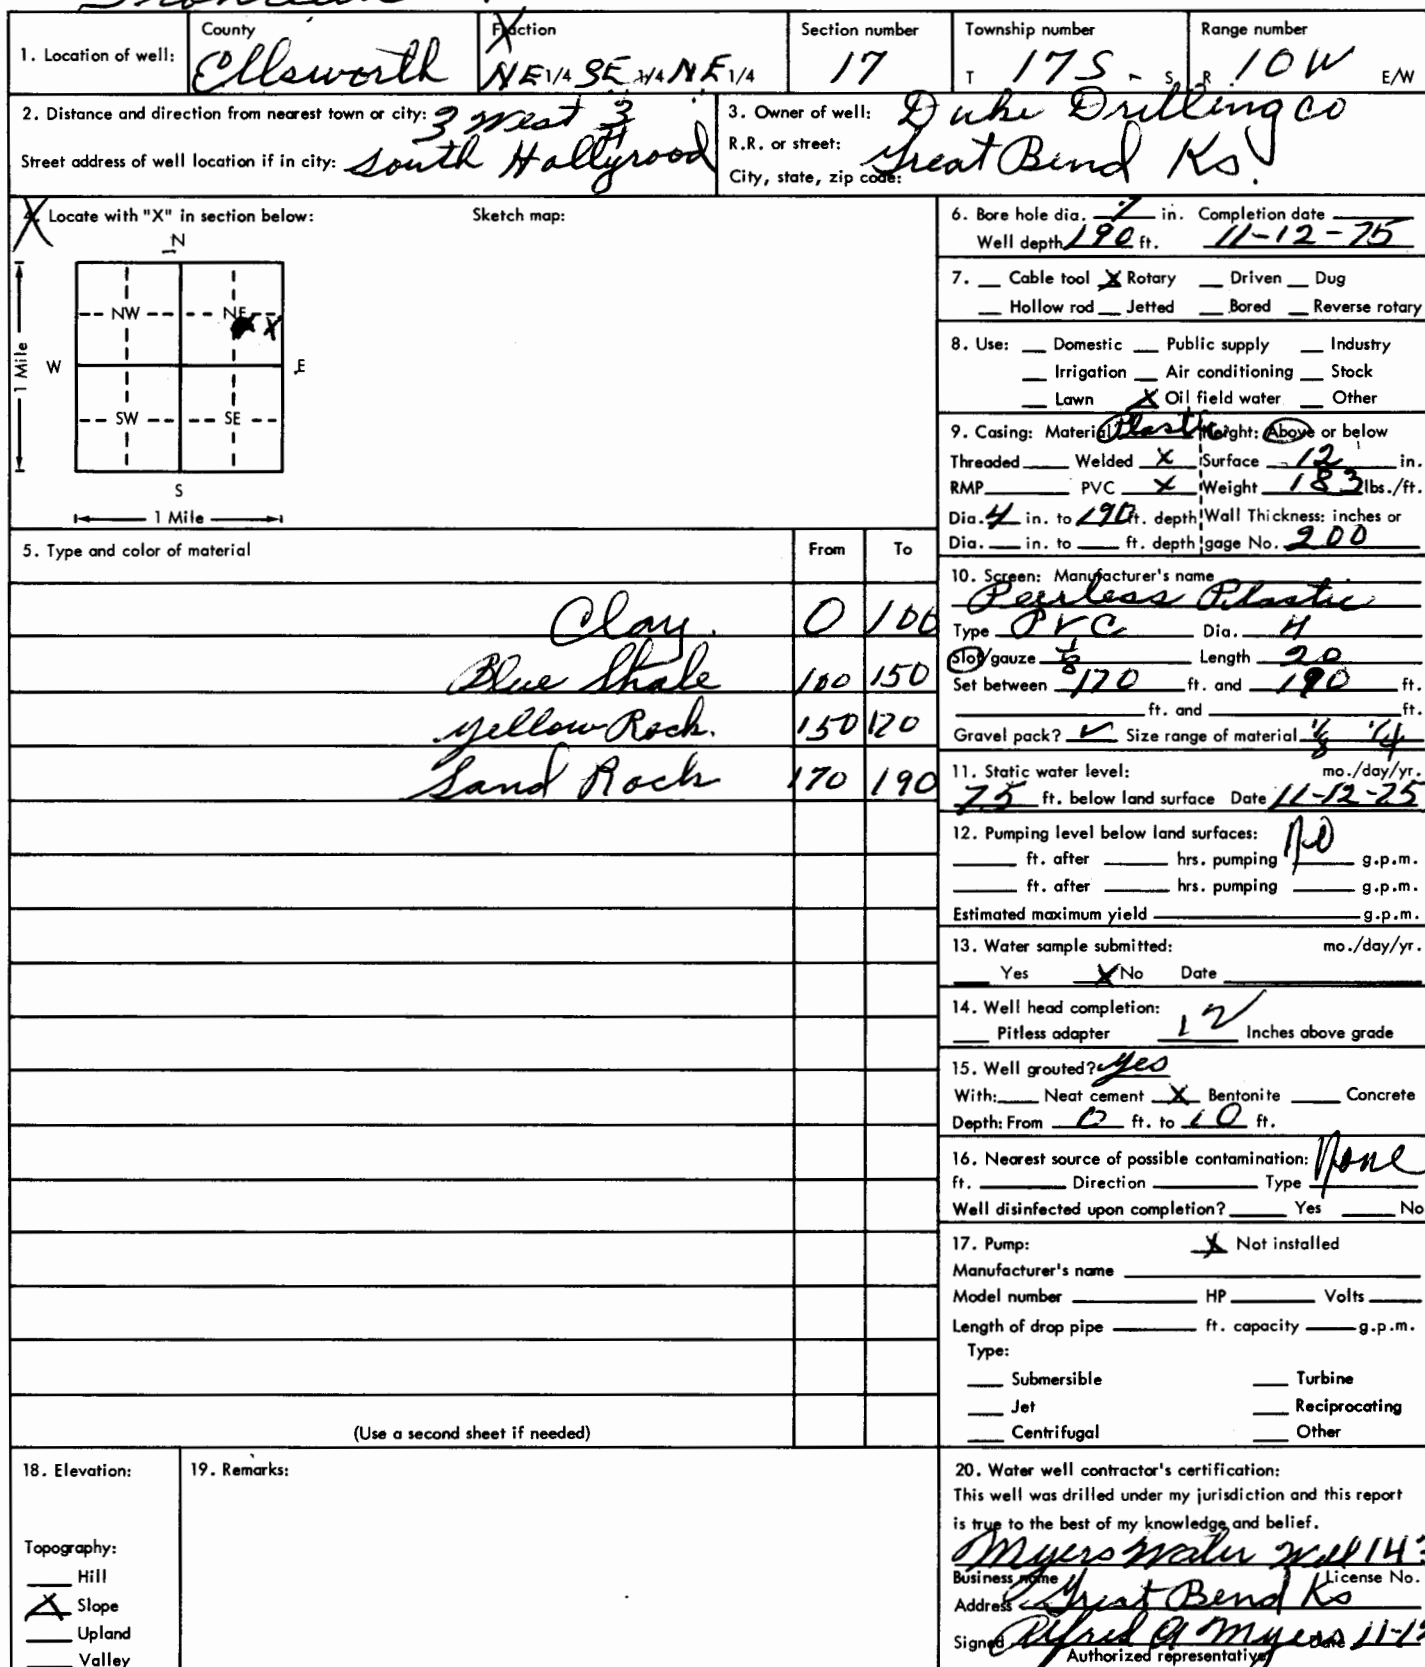 County Fraction Section number Township number Range number
1. Location of well: Ellsworth NE 1/4 SE 1/4 NE 1/4 17 T 17S - S R 10W E/W
2. Distance and direction from nearest town or city: 3 West 3
Street address of well location if in city: South Hollyrood
3. Owner of well: Duke Drilling Co
R.R. or street: Great Bend Ks.
City, state, zip code:
4. Locate with "X" in section below: Sketch map:
N
NW NE X
1 Mile W E
SW SE
S
1 Mile
5. Type and color of material From To
Clay. 0 100
Blue Shale 100 150
Yellow Rock. 150 170
Sand Rock 170 190
(Use a second sheet if needed)
6. Bore hole dia. 7 in. Completion date
Well depth 190 ft. 11-12-75
7. __ Cable tool X Rotary __ Driven __ Dug
__ Hollow rod __ Jetted __ Bored __ Reverse rotary
8. Use: __ Domestic __ Public supply __ Industry
__ Irrigation __ Air conditioning __ Stock
__ Lawn X Oil field water __ Other
9. Casing: Material Plastic Height: Above or below
Threaded ____ Welded X Surface 12 in.
RMP ____ PVC X Weight 183 lbs./ft.
Dia. 4 in. to 190 ft. depth Wall Thickness: inches or
Dia. __ in. to __ ft. depth gage No. 200
10. Screen: Manufacturer's name
Peerless Plastic
Type PVC Dia. 4
Slot/gauze 1/8 Length 20
Set between 170 ft. and 190 ft.
____ ft. and ____ ft.
Gravel pack? ✓ Size range of material 1/8 1/4
11. Static water level: mo./day/yr.
75 ft. below land surface Date 11-12-75
12. Pumping level below land surfaces: no
____ ft. after ____ hrs. pumping ____ g.p.m.
____ ft. after ____ hrs. pumping ____ g.p.m.
Estimated maximum yield ____ g.p.m.
13. Water sample submitted: mo./day/yr.
__ Yes X No Date ____
14. Well head completion:
__ Pitless adapter 12 Inches above grade
15. Well grouted? yes
With: __ Neat cement X Bentonite __ Concrete
Depth: From 0 ft. to 10 ft.
16. Nearest source of possible contamination: None
ft. ____ Direction ____ Type ____
Well disinfected upon completion? ____ Yes ____ No
17. Pump: X Not installed
Manufacturer's name ____
Model number ____ HP ____ Volts ____
Length of drop pipe ____ ft. capacity ____ g.p.m.
Type:
__ Submersible __ Turbine
__ Jet __ Reciprocating
__ Centrifugal __ Other
18. Elevation:
Topography:
__ Hill
X Slope
__ Upland
__ Valley
19. Remarks:
20. Water well contractor's certification:
This well was drilled under my jurisdiction and this report
is true to the best of my knowledge and belief.
Myers Water Well 143
Business name License No.
Address Great Bend Ks
Signed Alfred A Myers Date 11-12
Authorized representative